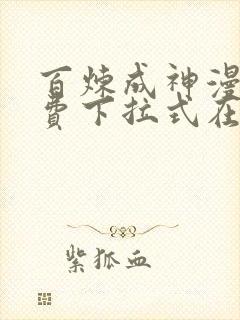 百炼成神漫
费下拉式在
紫狐血